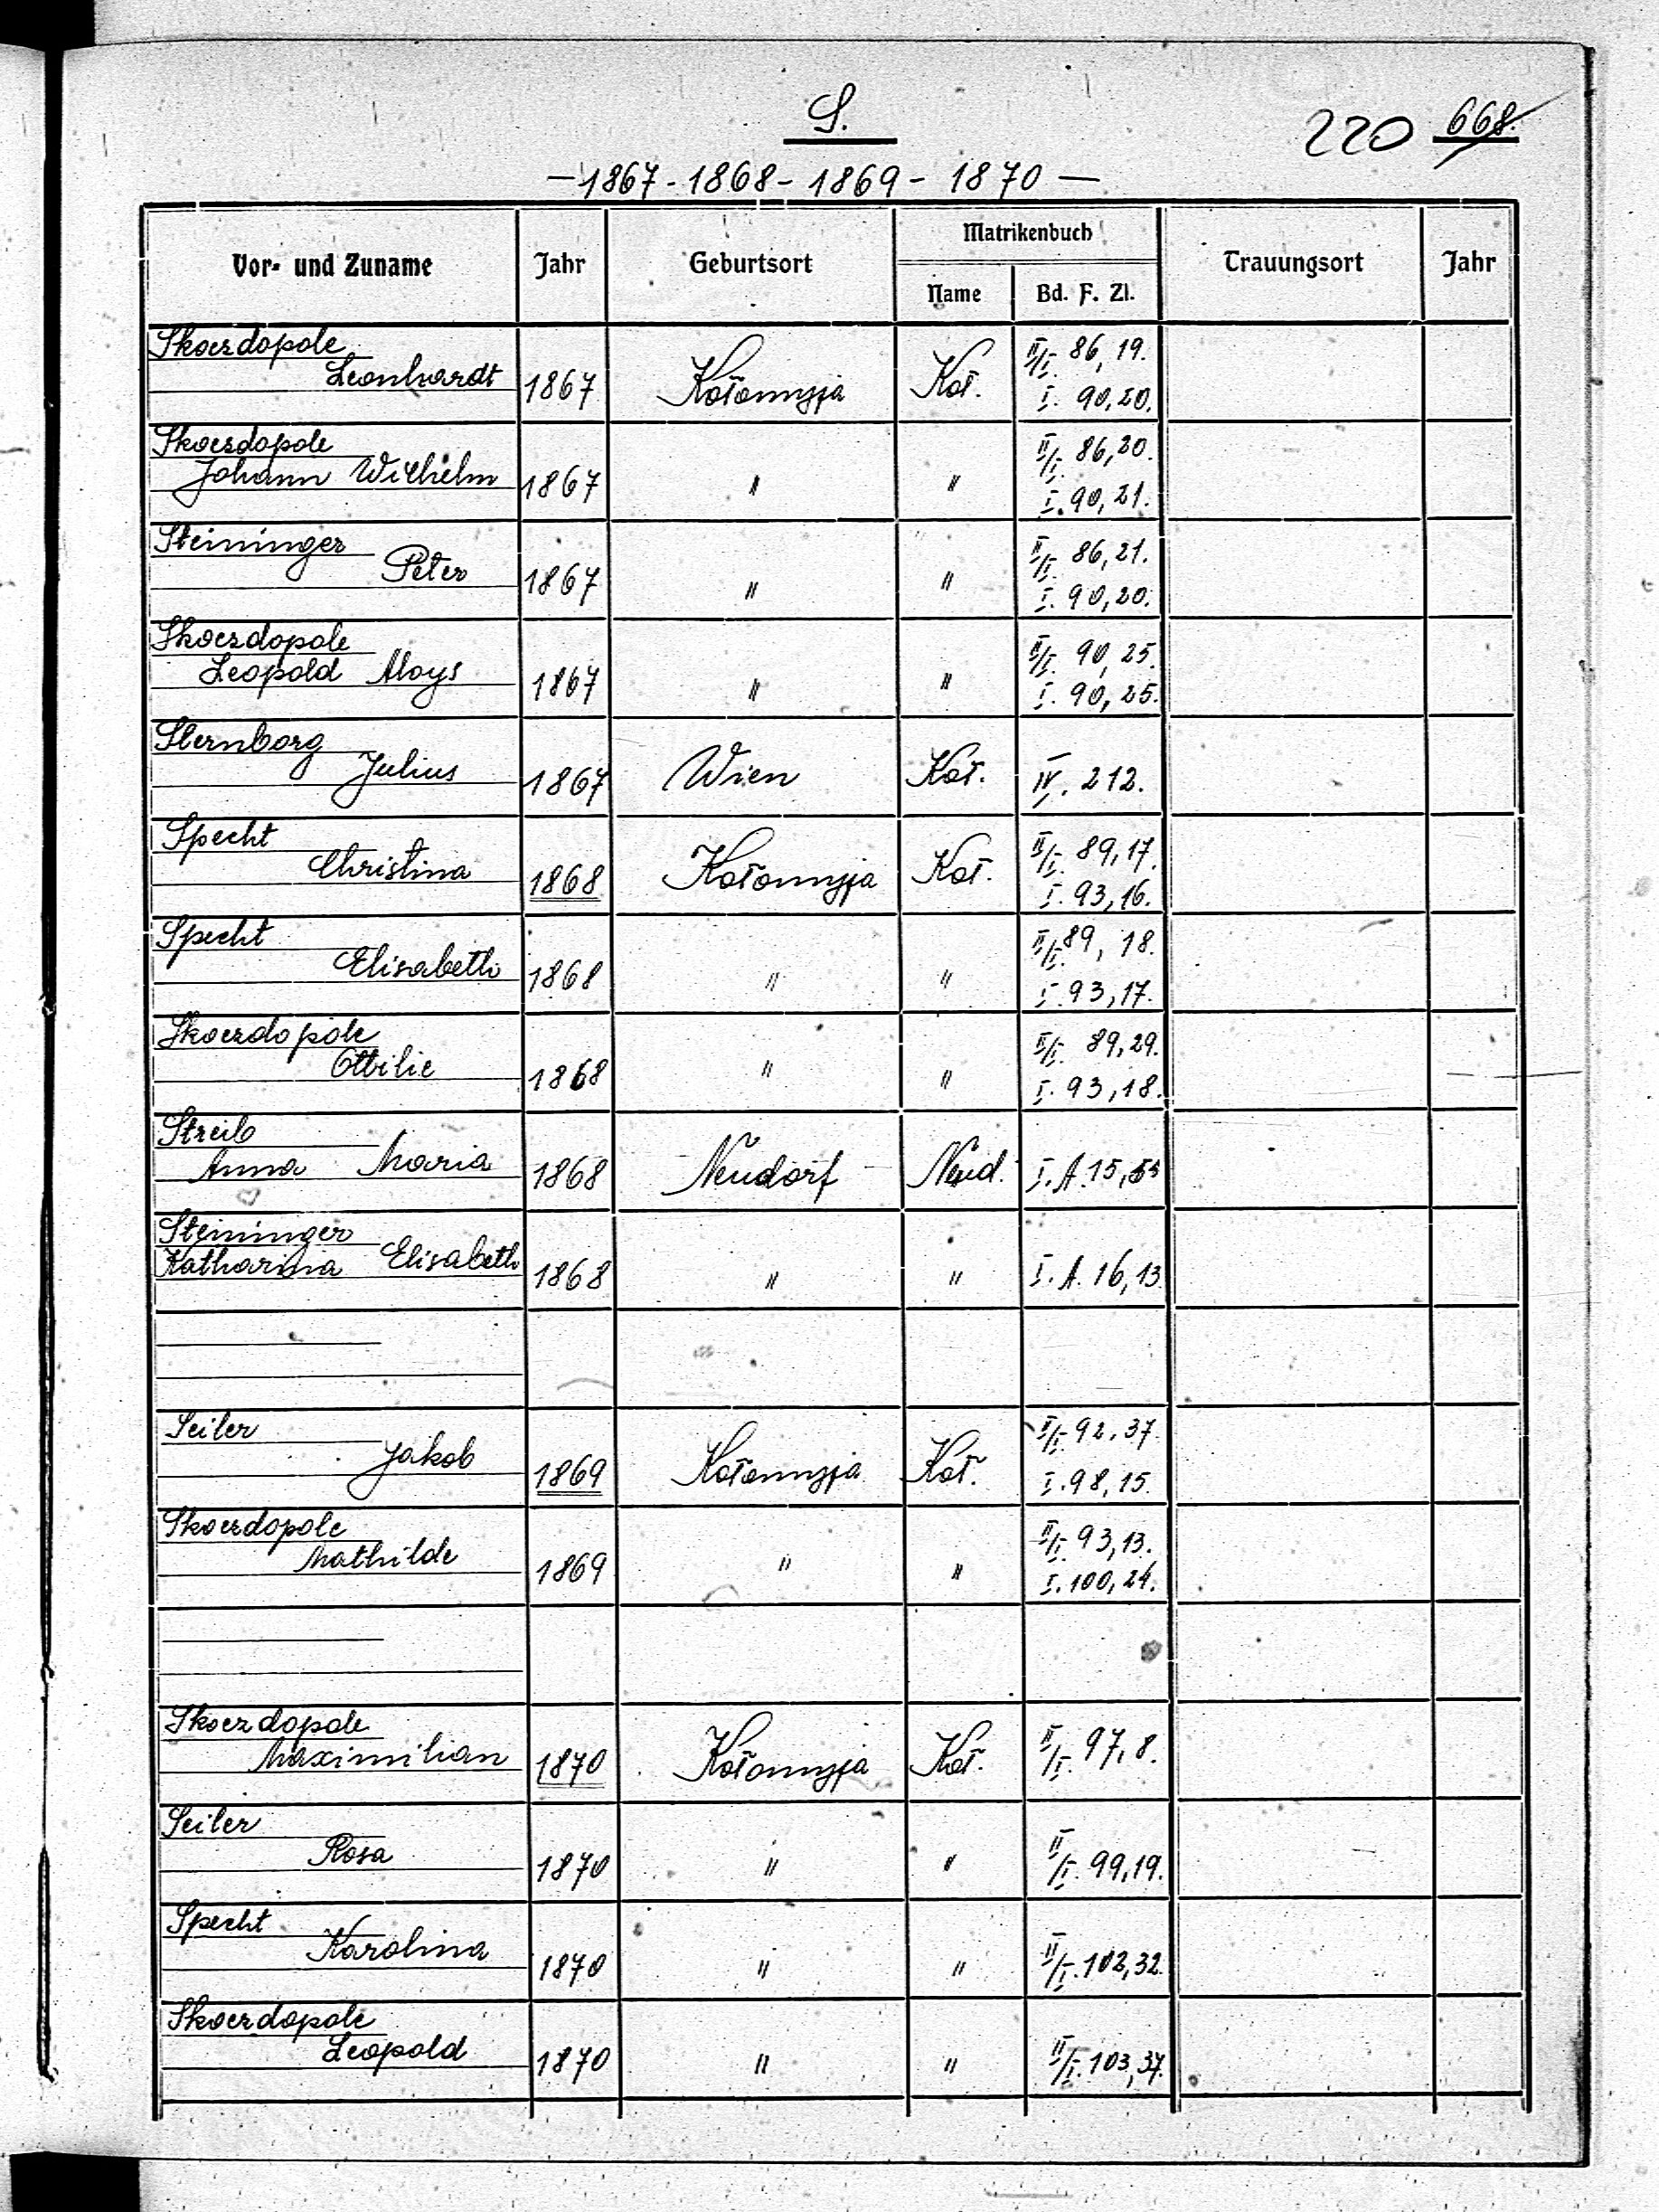 S.
220 668.
— 1867 - 1868 - 1869 - 1870 —
Vor- und Zuname Jahr Geburtsort Matrikenbuch Trauungsort Jahr
Name Bd. F. Zl.
Skoerdopole II/I. 86, 19.
Leonhardt 1867 Kołomyja Koł. I. 90, 20.
Skoerdopole II/I. 86, 20.
Johann Wilhelm 1867 " " I. 90, 21.
Steininger II/I. 86, 21.
Peter 1867 " " I. 90, 20.
Skoerdopole II/I. 90, 25.
Leopold Aloys 1867 " " I. 90, 25.
Sternborg
Julius 1867 Wien Koł. IV. 212.
Specht II/I. 89, 17.
Christina 1868 Kołomyja Koł. I. 93, 16.
Specht II/I. 89, 18.
Elisabeth 1868 " " I. 93, 17.
Skoerdopole II/I. 89, 29.
Ottilie 1868 " " I. 93, 18.
Streib
Anna Maria 1868 Neudorf Neud. I. A. 15,
Steininger
Katharina Elisabeth 1868 " " I. A. 16, 13
Seiler II/I. 92, 37.
Jakob 1869 Kołomyja Koł. I. 98, 15.
Skoerdopole II/I. 93, 13.
Mathilde 1869 " " I. 100, 24.
Skoerdopole
Maximilian 1870 Kołomyja Koł. II/I. 97, 8.
Seiler
Rosa 1870 " " II/I. 99, 19.
Specht
Karolina 1870 " " II/I. 102, 32.
Skoerdopole
Leopold 1870 " " II/I. 103, 37.